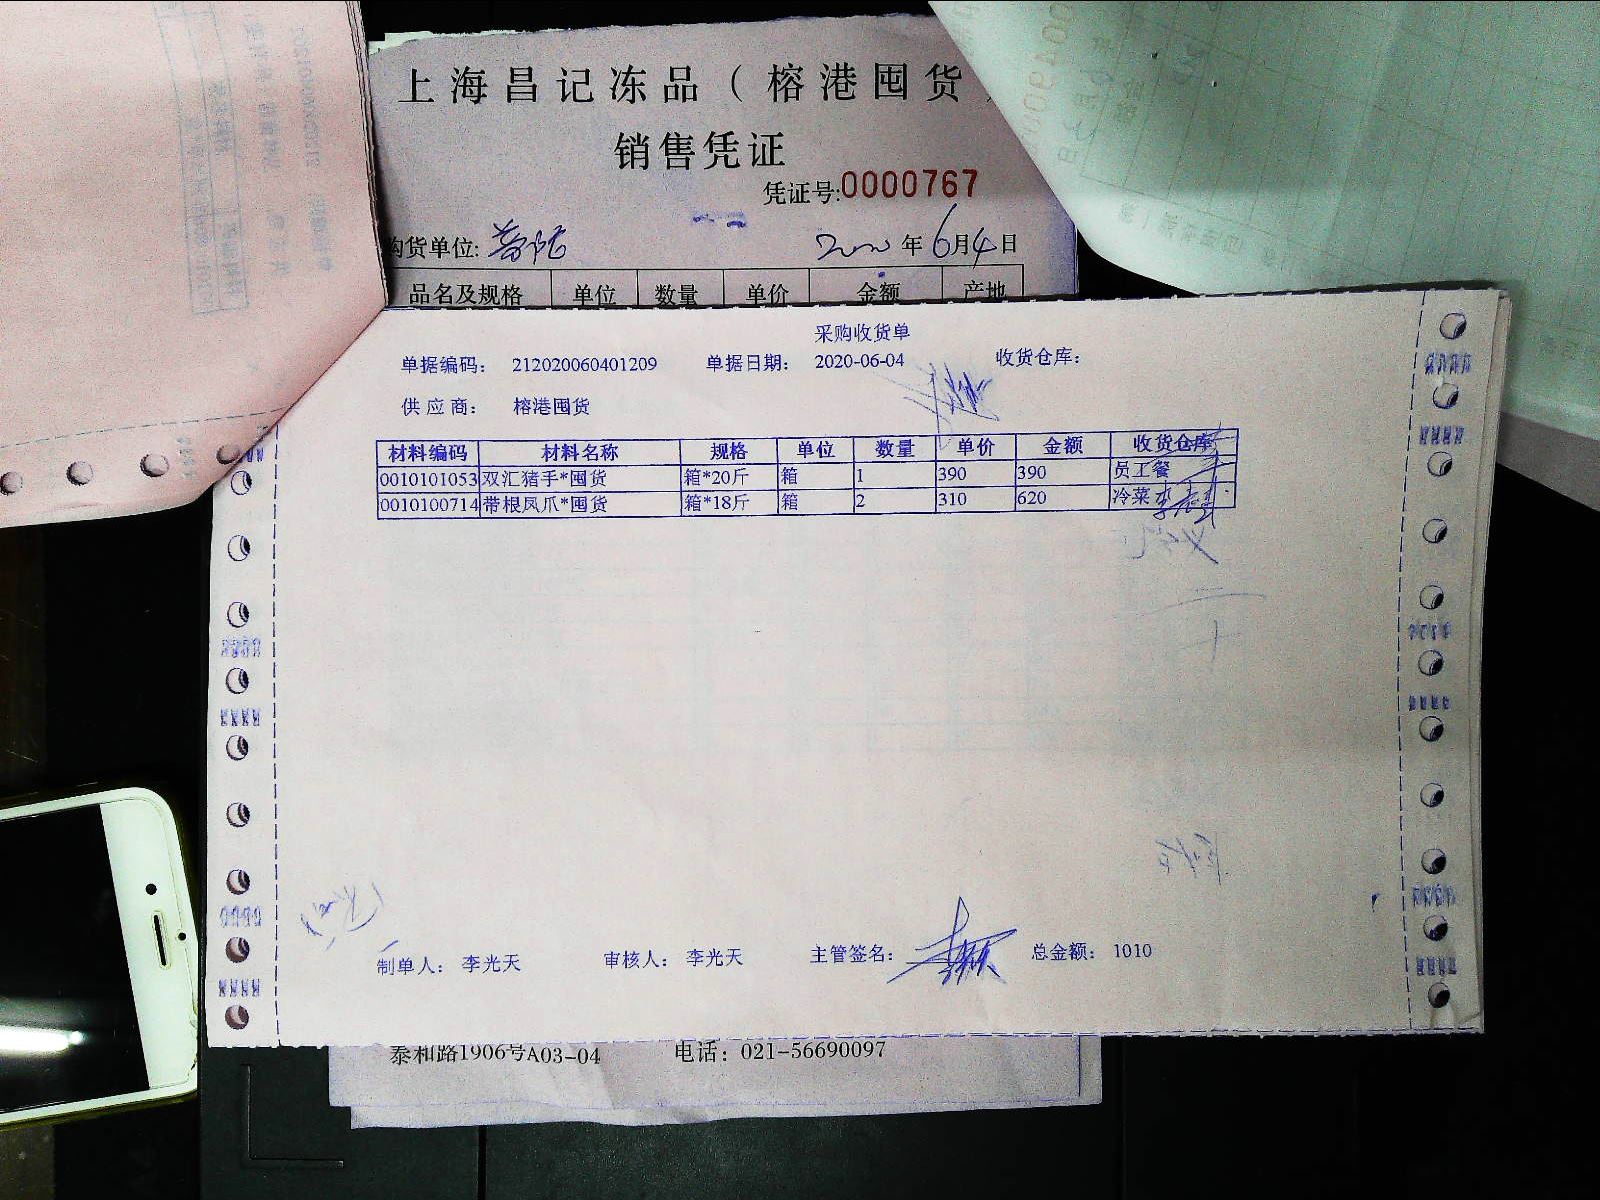 上海昌记冻品（榕港囤货）
销售凭证
凭证号:0000767
购货单位:
2020年6月4日
品名及规格 单位 数量 单价 金额 产地
采购收货单
单据编码： 212020060401209 单据日期： 2020-06-04 收货仓库：
供应商： 榕港囤货
材料编码 材料名称 规格 单位 数量 单价 金额 收货仓库
0010101053 双汇猪手*囤货 箱*20斤 箱 1 390 390 员工餐
0010100714 带根凤爪*囤货 箱*18斤 箱 2 310 620 冷菜
制单人： 李光天 审核人： 李光天 主管签名： 总金额： 1010
泰和路1906号A03-04 电话：021-56690097